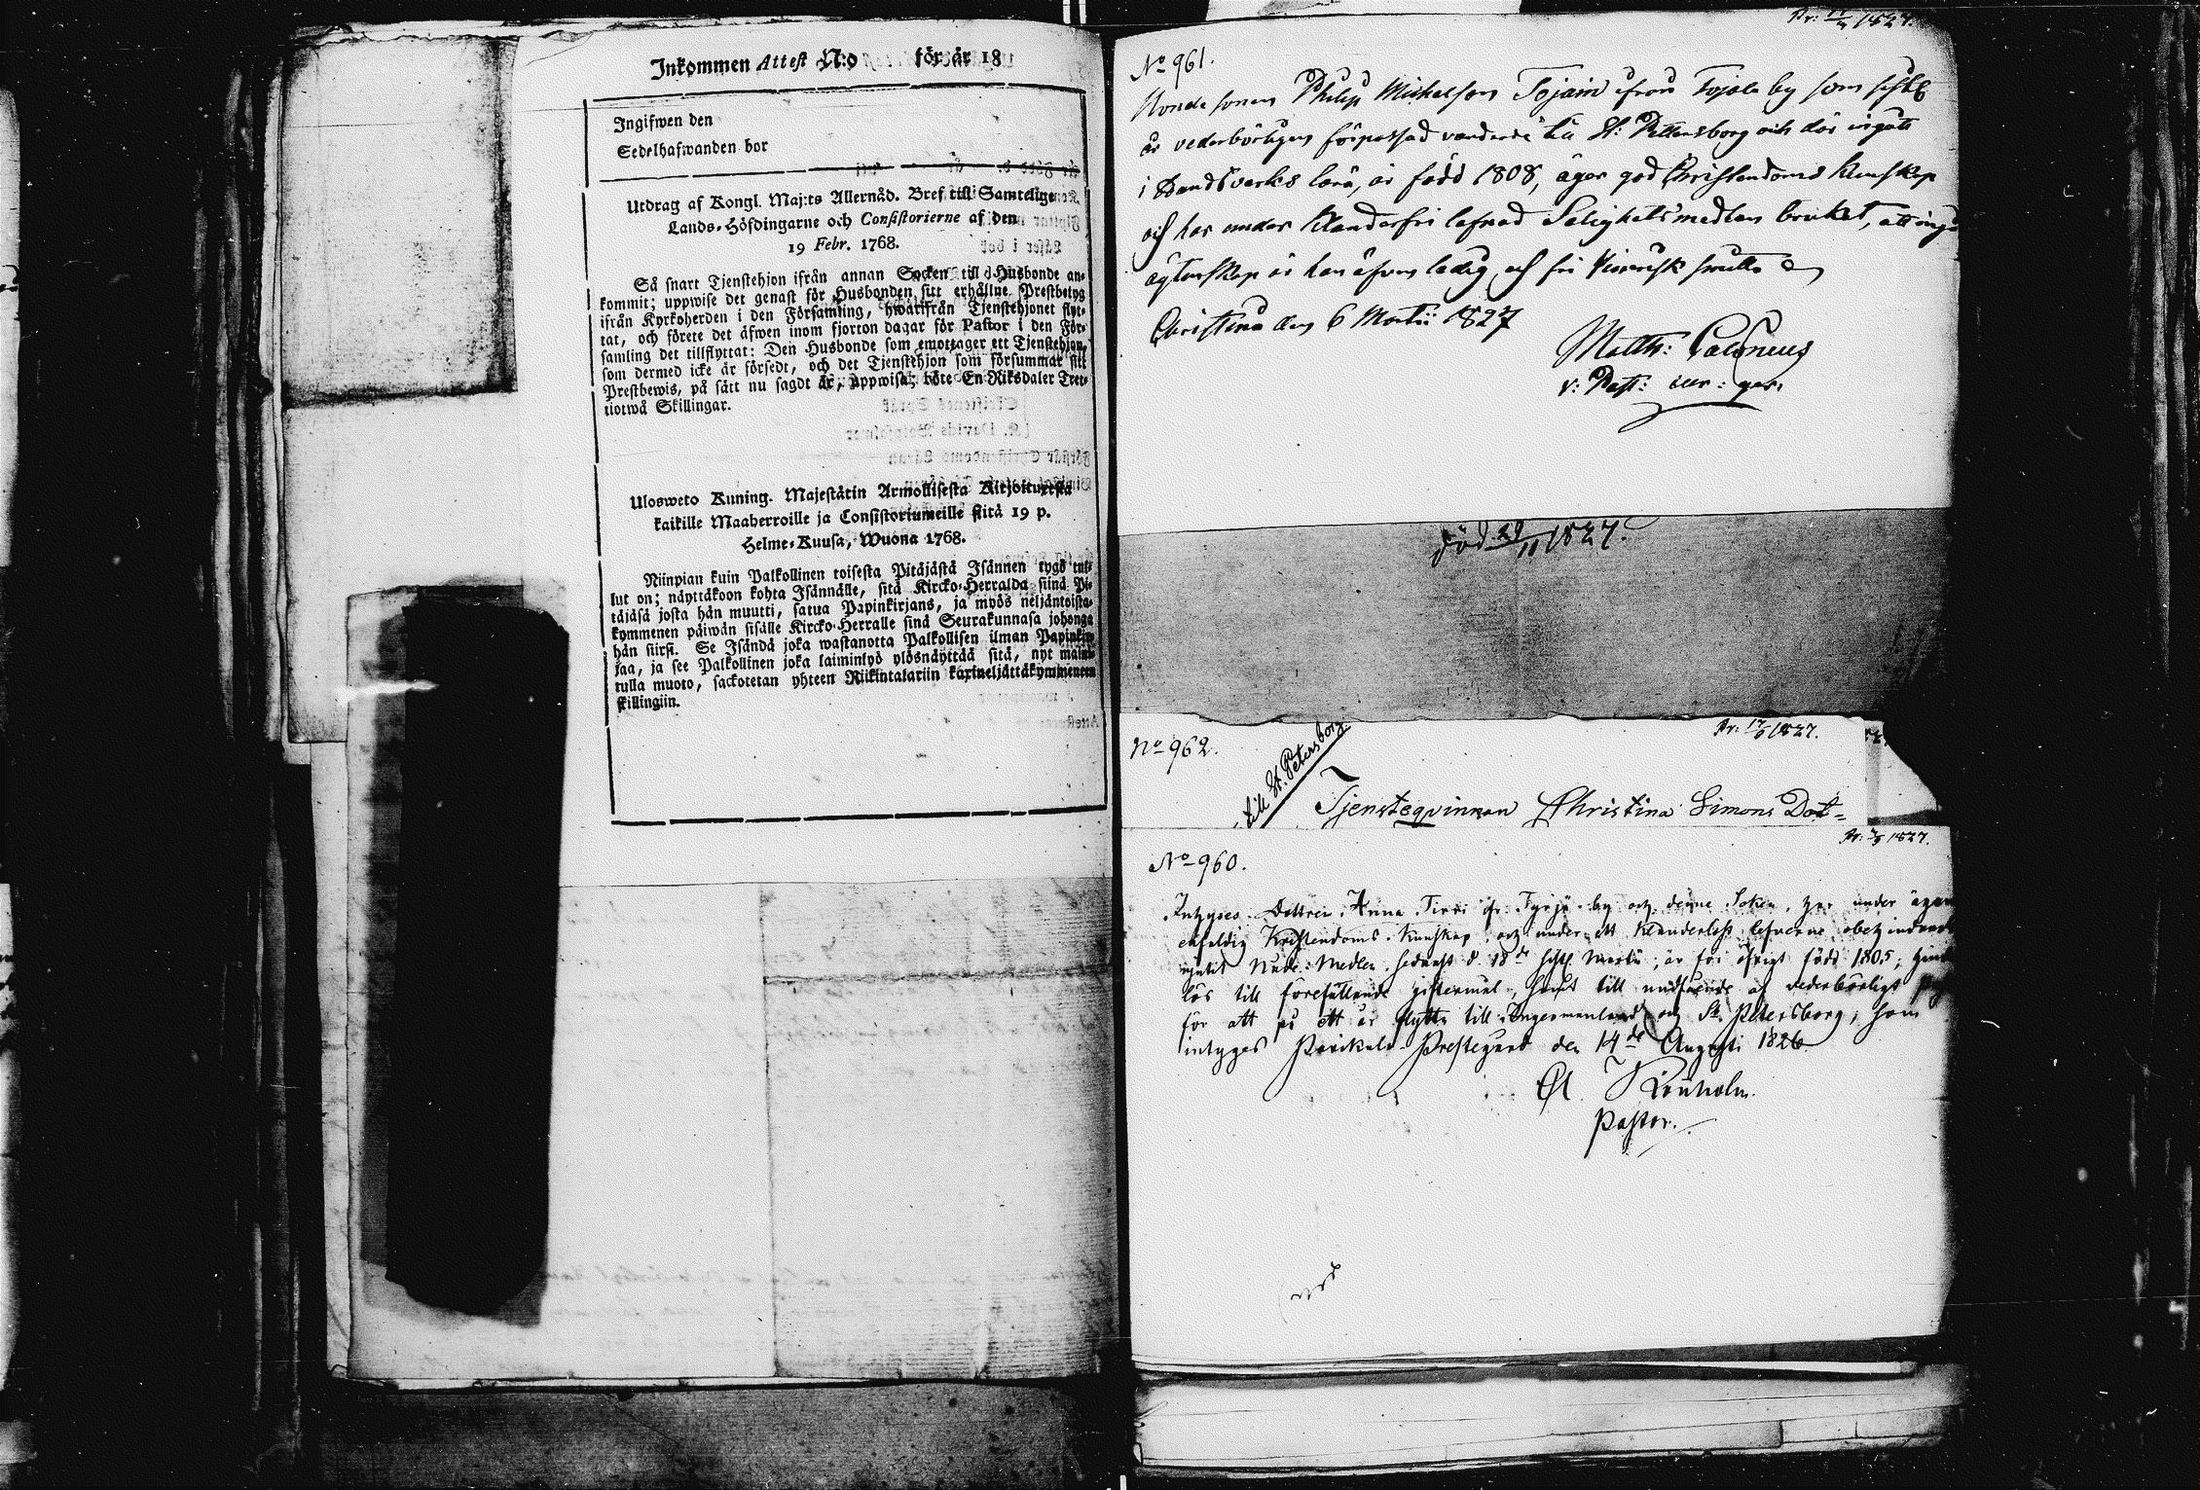 Inkommen Attest N:o för år 18
Ingifwen den
Sedelhafwanden bor
Utdrag af Kongl. Maj:ts Allernåd. Bref till Samtelige
Lands-Höfdingarne och Consistorierne af den
19 Febr. 1768.
Så snart Tjenstehjon ifrån annan Socken till Husbonde an-
kommit; uppwise det genast för Husbonden sitt erhållne Prestbetyg
ifrån Kyrkoherden i den Församling, hwarifrån Tjenstehjonet flyt-
tat, och förete det äfwen inom fjorton dagar för Pastor i den För-
samling det tillflyttat: Den Husbonde som emottager ett Tjenstehjon,
som dermed icke är försedt, och det Tjenstehjon som försummar sitt
Prestbewis, på sätt nu sagdt är, uppwisa; böte En Riksdaler Tret-
tiotwå Skillingar.
Ulosweto Kuning. Majestätin Armollisesta Kirjoituxesta
kaikille Maaherroille ja Consistoriumeille siitä 19 p.
Helme-Kuusa, Wuona 1768.
Niinpian kuin Palkollinen toisesta Pitäjästä Isännen tygö tul-
lut on; näyttäkoon kohta Isännälle, sitä Kircko-Herralda siinä Pi-
täjäsä josta hän muutti, satua Papinkirjans, ja myös neljäntoista-
kymmenen päiwän sisälle Kircko-Herralle sinä Seurakunnasa johonga
hän siirsi. Se Isändä joka wastanotta Palkollisen ilman Papinkir-
jaa, ja see Palkollinen joka laiminlyö ylösnäyttää sitä, nyt maini-
tulla muoto, sackotetan yhteen Riikintalariin kaxineljättäkymmeneen
skillingiin.
Pr: 1827.
No 961.
Bonde sonen Philip Michelsson Tojain ifrån Tojola by som
är vederbörligen förpassad vandrade till St: Pettersborg och där ingått
i Handtverks lära, är född 1808, äger god Christendoms kunskap
och har under klanderfri lefnad Salighets medlen brukat, att ingå
ägtenskap är han äfven ledig och fri
Christina den 6 Martii 1827
Matth:
v: Past:
död 29/11 1827.
No 962.
till St. Petersborg.
Pr: 17/ 1827.
Tjensteqvinnan Christina Simons Dot=
Pr: 1827.
No 960.
Intyges Dottren Anna Tirri fr. Tyrjä by och denne Soken, har under ägan
enfaldig Kristendoms Kunskap och under ett klanderlöst lefverne
Nåde Medlen sednast d. 18de Martii; är för öfrigt född 1805;
lös till förefallande giftermål, samt till undfående af vederbörligt
för att på ett år flytta till Ingermanland och St. Petersborg, som
intyges Parikala Prestegård den 14de Augusti 1826
Pastor.